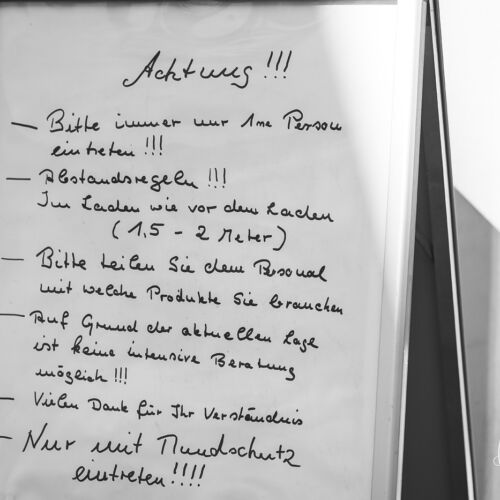 Achtung !!!
– Bitte immer nur 1ne Person
eintreten !!!
– Abstandsregeln !!!
Im Laden wie vor dem Laden
(1,5 - 2 Meter)
– Bitte teilen Sie dem Personal
mit welche Produkte Sie brauchen
– Auf Grund der aktuellen Lage
ist keine intensive Beratung
möglich !!!
– Vielen Dank für Ihr Verständnis
– Nur mit Mundschutz
eintreten !!!!